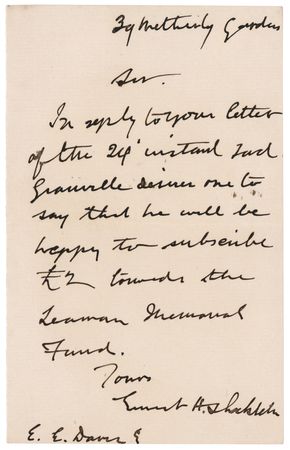 39 Wetherby Gardens
Sir.
In reply to your letter
of the 24th instant Lord
Granville desires me to
say that he will be
happy to subscribe
£2 towards the
Seaman Memorial
Fund.
Yours
Ernest H. Shackleton
E. E. Davis E